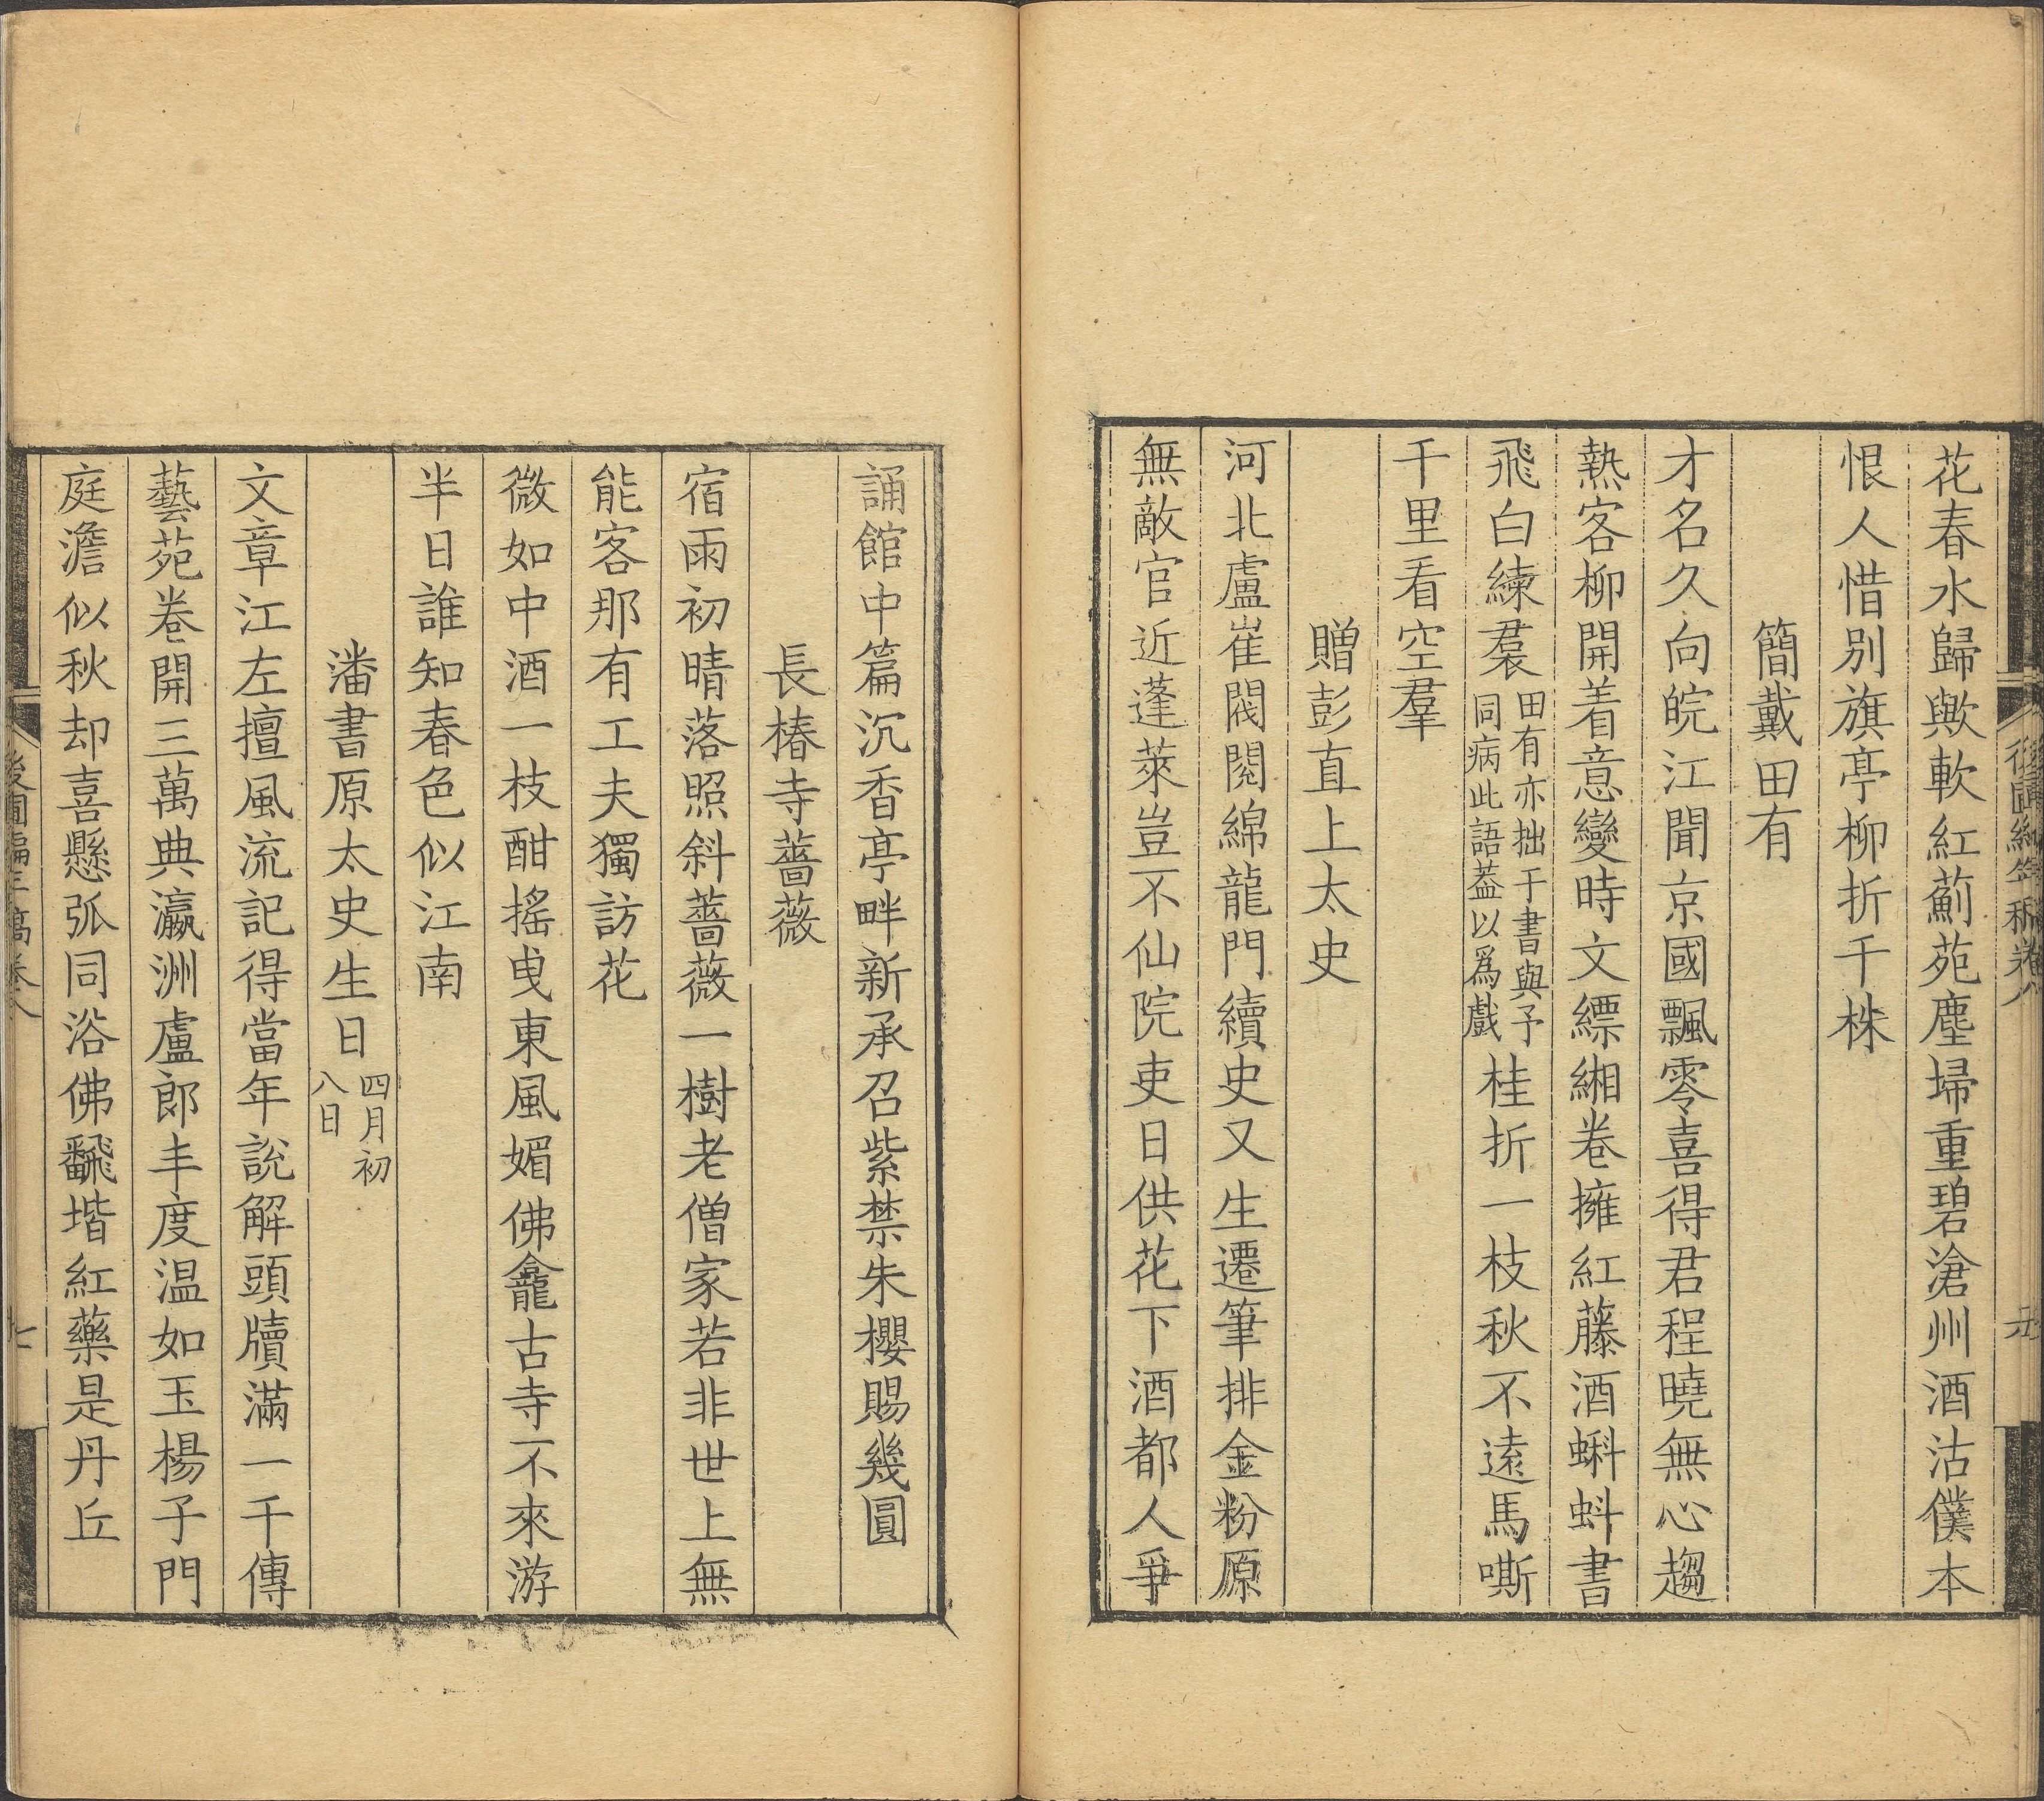 花春水歸歟軟紅薊苑塵埽重碧滄州酒沽僕本
恨人惜別旗亭柳折千株
簡戴田有
才名久向皖江聞京國飄零喜得君程曉無心趨
熱客柳開着意變時文縹緗卷擁紅藤酒蝌蚪書
飛白練裠田有亦拙于書與予同病此語葢以爲戲桂折一枝秋不遠馬嘶
千里看空羣
贈彭直上太史
河北盧崔閥閱綿龍門續史又生遷筆排金粉原
無敵官近蓬萊豈不仙院吏日供花下酒都人爭
誦館中篇沉香亭畔新承召紫禁朱櫻賜幾圓
長椿寺薔薇
宿雨初晴落照斜薔薇一樹老僧家若非世上無
能客那有工夫獨訪花
微如中酒一枝酣搖曳東風媚佛龕古寺不來游
半日誰知春色似江南
潘書原太史生日四月初八日
文章江左擅風流記得當年說解頭牘滿一千傳
藝苑卷開三萬典瀛洲盧郎丰度温如玉楊子門
庭澹似秋却喜懸弧同浴佛飜堦紅藥是丹丘
後圃編年稿卷八
七